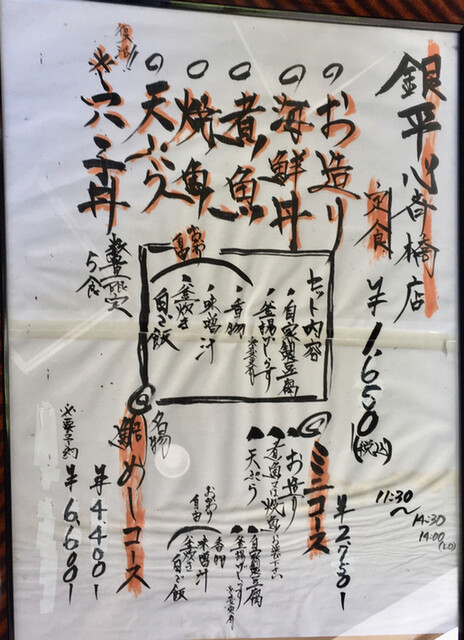 銀平心斎橋店
定食 ¥1,650(税込)
11:30
〜
14:30
14:00
(LO)
○お造り
○海鮮丼
○煮魚
○焼魚
○天ぷら
復活!!
※穴子丼
数量限定
5食
セット内容
・自家製豆腐
・釜揚げしらす
・香物
・味噌汁
・釜炊き
白ご飯
おかわり
自由
◎ミニコース ¥2,750-
お造り
煮魚又は焼魚
天ぷら
自家製豆腐
釜揚げしらす
香物
味噌汁
釜炊き
白ご飯
おかわり
自由
◎名物
鯛めしコース
¥4,400-
¥6,600-
※要予約